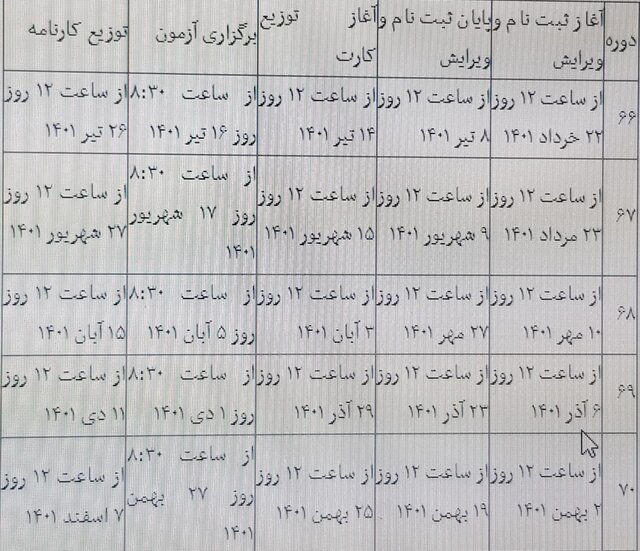 دوره
آغاز ثبت نام و
ویرایش
پایان ثبت نام و
ویرایش
آغاز توزیع
کارت
برگزاری آزمون
توزیع کارنامه
۶۶
از ساعت ۱۲ روز
۲۲ خرداد ۱۴۰۱
از ساعت ۱۲ روز
۸ تیر ۱۴۰۱
از ساعت ۱۲ روز
۱۴ تیر ۱۴۰۱
از ساعت ۸:۳۰
روز ۱۶ تیر ۱۴۰۱
از ساعت ۱۲ روز
۲۶ تیر ۱۴۰۱
۶۷
از ساعت ۱۲ روز
۲۳ مرداد ۱۴۰۱
از ساعت ۱۲ روز
۹ شهریور ۱۴۰۱
از ساعت ۱۲ روز
۱۵ شهریور ۱۴۰۱
از ساعت ۸:۳۰
روز ۱۷ شهریور
۱۴۰۱
از ساعت ۱۲ روز
۲۷ شهریور ۱۴۰۱
۶۸
از ساعت ۱۲ روز
۱۰ مهر ۱۴۰۱
از ساعت ۱۲ روز
۲۷ مهر ۱۴۰۱
از ساعت ۱۲ روز
۳ آبان ۱۴۰۱
از ساعت ۸:۳۰
روز ۵ آبان ۱۴۰۱
از ساعت ۱۲ روز
۱۵ آبان ۱۴۰۱
۶۹
از ساعت ۱۲ روز
۶ آذر ۱۴۰۱
از ساعت ۱۲ روز
۲۳ آذر ۱۴۰۱
از ساعت ۱۲ روز
۲۹ آذر ۱۴۰۱
از ساعت ۸:۳۰
روز ۱ دی ۱۴۰۱
از ساعت ۱۲ روز
۱۱ دی ۱۴۰۱
۷۰
از ساعت ۱۲ روز
۲ بهمن ۱۴۰۱
از ساعت ۱۲ روز
۱۹ بهمن ۱۴۰۱
از ساعت ۱۲ روز
۲۵ بهمن ۱۴۰۱
از ساعت ۸:۳۰
روز ۲۷ بهمن
۱۴۰۱
از ساعت ۱۲ روز
۷ اسفند ۱۴۰۱